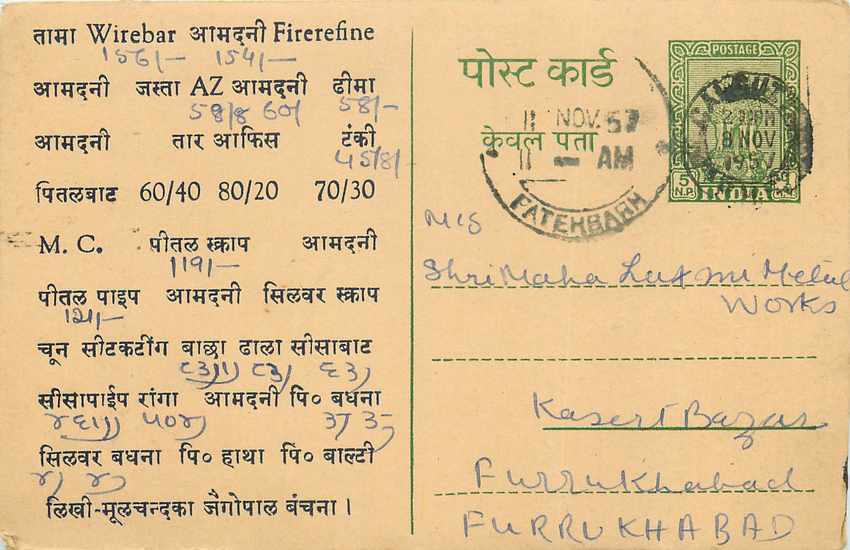 तामा Wirebar आमदनी Firerefine
156/- 154/-
आमदनी जस्ता AZ आमदनी ढीमा
58/8 60/ 58/-
आमदनी तार आफिस टंकी
45/8/-
पितलबाट 60/40 80/20 70/30
M. C. पीतल स्क्राप आमदनी
119/-
पीतल पाइप आमदनी सिलवर स्क्राप
121/-
चून सीटकटींग बाछा ढाला सीसाबाट
सीसापाईप रांगा आमदनी पि० बधना
सिलवर बधना पि० हाथा पि० बाल्टी
लिखी-मूलचन्दका जैगोपाल बंचना ।
पोस्ट कार्ड
केवल पता
POSTAGE
5 N.P.
INDIA
CALCUTTA
8 NOV
1957
11 NOV. 57
11 - AM
FATEHGARH
M/S
Shri Maha Laxmi Metal
Works
Kasert Bazar
Furrukhabad
FURRUKHABAD